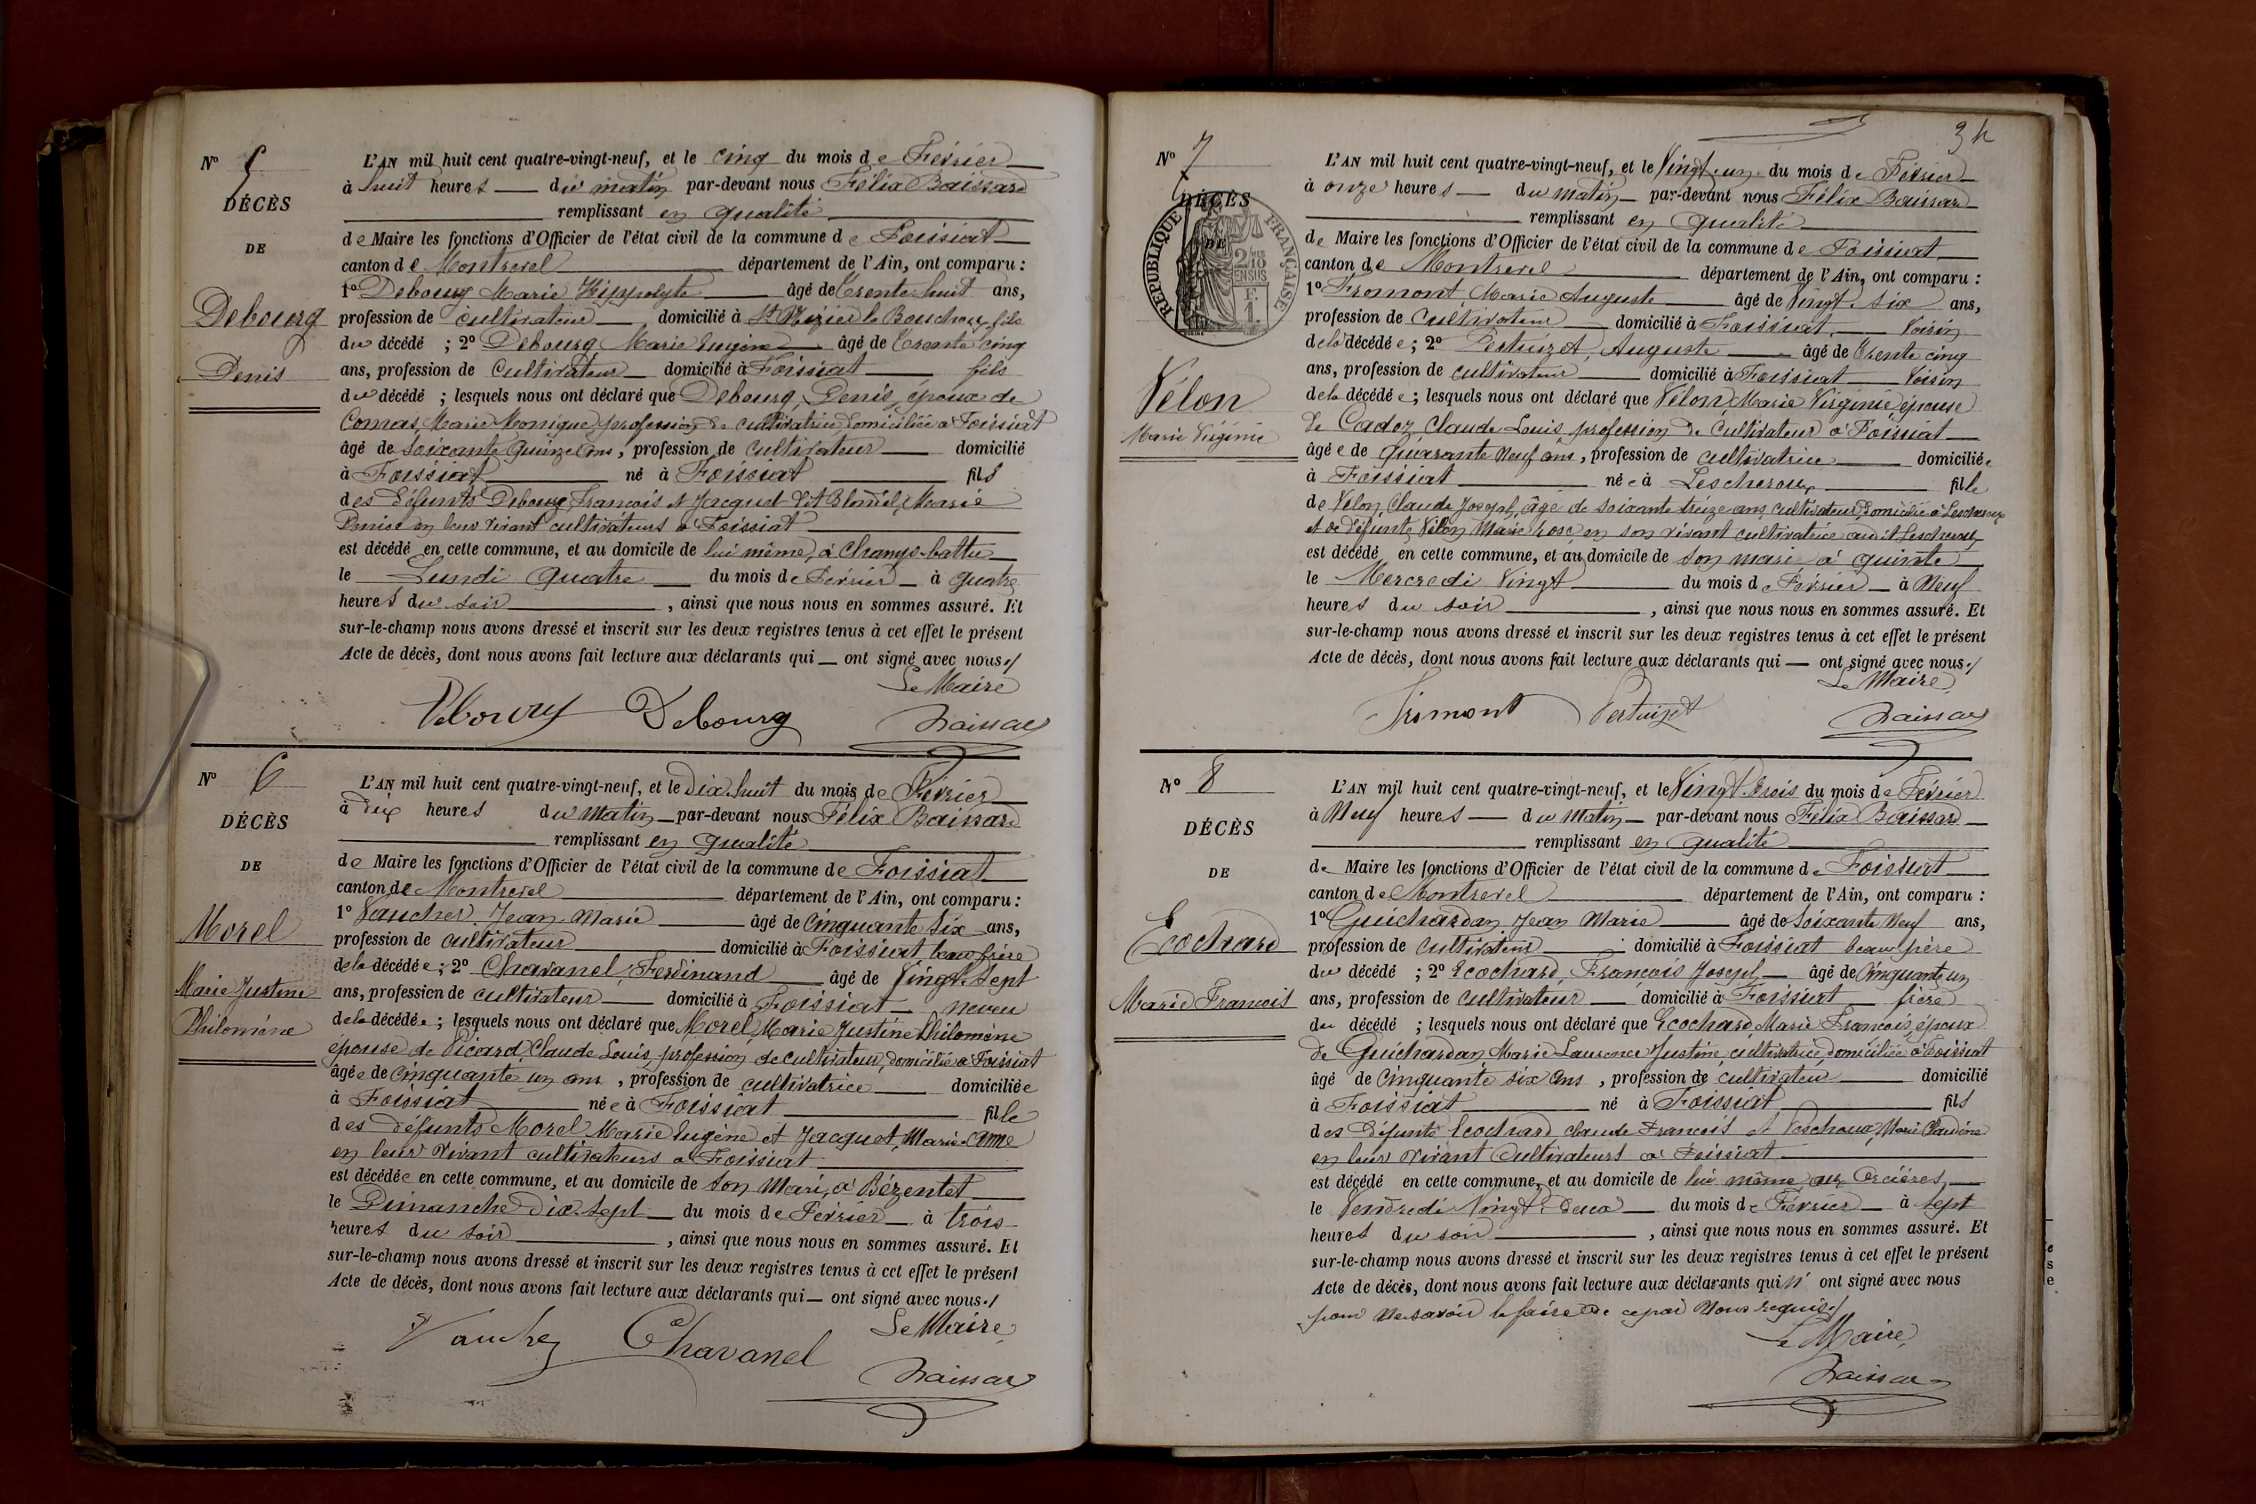 N° 5
DÉCÈS
DE
Debourg
Denis
L'AN mil huit cent quatre-vingt-neuf, et le cinq du mois de Février
à huit heures du matin par-devant nous Félix Baissard
remplissant en qualité
de Maire les fonctions d'Officier de l'état civil de la commune de Foissiat
canton de Montrevel département de l'Ain, ont comparu :
1° Debourg Marie Hippolyte âgé de trente huit ans,
profession de cultivateur domicilié à St Nizier le Bouchoux fils
du décédé ; 2° Debourg Marie Eugène âgé de trente cinq
ans, profession de cultivateur domicilié à Foissiat fils
du décédé ; lesquels nous ont déclaré que Debourg, Denis, époux de
Comas, Marie Monique profession de cultivatrice domiciliée à Foissiat
âgé de soixante quinze ans, profession de cultivateur domicilié
à Foissiat né à Foissiat fils
des défunts Debourg, François et Jacquet dit Blondel, Marie
Denise en leur vivant cultivateurs à Foissiat
est décédé en cette commune, et au domicile de lui même, à Champs-battu
le Lundi quatre du mois de Février à quatre
heures du soir, ainsi que nous nous en sommes assuré. Et
sur-le-champ nous avons dressé et inscrit sur les deux registres tenus à cet effet le présent
Acte de décès, dont nous avons fait lecture aux déclarants qui ont signé avec nous./
Le Maire
Debourg Debourg Baissard
N° 6
DÉCÈS
DE
Morel
Marie Justine
Philomène
L'AN mil huit cent quatre-vingt-neuf, et le Dix huit du mois de Février
à dix heures du matin par-devant nous Félix Baissard
remplissant en qualité
de Maire les fonctions d'Officier de l'état civil de la commune de Foissiat
canton de Montrevel département de l'Ain, ont comparu :
1° Vaucher, Jean Marie âgé de cinquante six ans,
profession de cultivateur domicilié à Foissiat beau frère
de la décédée ; 2° Chavanel, Ferdinand âgé de Vingt sept
ans, profession de cultivateur domicilié à Foissiat neveu
de la décédée ; lesquels nous ont déclaré que Morel, Marie Justine Philomène
épouse de Picard, Claude Louis, profession de cultivateur, domicilié à Foissiat
âgée de cinquante un ans, profession de cultivatrice domiciliée
à Foissiat née à Foissiat fille
des défunts Morel Marie Eugène et Jacquet, Marie Anne
en leur vivant cultivateurs à Foissiat
est décédée en cette commune, et au domicile de son mari, à Bézentet
le Dimanche Dix sept du mois de Février à trois
heures du soir, ainsi que nous nous en sommes assuré. Et
sur-le-champ nous avons dressé et inscrit sur les deux registres tenus à cet effet le présent
Acte de décès, dont nous avons fait lecture aux déclarants qui ont signé avec nous./
Le Maire
Vaucher Chavanel Baissard
N° 7
DÉCÈS
DE
RÉPUBLIQUE FRANÇAISE
2/10 EN SUS
F. 1
Vélon
Marie Virginie
L'AN mil huit cent quatre-vingt-neuf, et le Vingt un du mois de Février
à onze heures du matin par-devant nous Félix Baissard
remplissant en qualité
de Maire les fonctions d'Officier de l'état civil de la commune de Foissiat
canton de Montrevel département de l'Ain, ont comparu :
1° Fromont, Marie Auguste âgé de Vingt six ans,
profession de cultivateur domicilié à Foissiat Voisin
de la décédée ; 2° Pertuizet, Auguste âgé de trente cinq
ans, profession de cultivateur domicilié à Foissiat Voisin
de la décédée ; lesquels nous ont déclaré que Vélon, Marie Virginie épouse
de Cadoz, Claude Louis, profession de cultivateur à Foissiat
âgée de quarante neuf ans, profession de cultivatrice domiciliée
à Foissiat née à Lescheroux fille
de Vélon, Claude Joseph, âgé de soixante treize ans, cultivateur, domicilié à Lescheroux
et de défunte Vélon Marie Rose en son vivant cultivatrice audit Lescheroux
est décédé en cette commune, et au domicile de son mari à quinte
le Mercredi Vingt du mois de Février à Neuf
heures du soir, ainsi que nous nous en sommes assuré. Et
sur-le-champ nous avons dressé et inscrit sur les deux registres tenus à cet effet le présent
Acte de décès, dont nous avons fait lecture aux déclarants qui ont signé avec nous./
Le Maire
Fromont Pertuizet Baissard
N° 8
DÉCÈS
DE
Ecochard
Marie François
L'AN mil huit cent quatre-vingt-neuf, et le Vingt trois du mois de Février
à Neuf heures du matin par-devant nous Félix Baissard
remplissant en qualité
de Maire les fonctions d'Officier de l'état civil de la commune de Foissiat
canton de Montrevel département de l'Ain, ont comparu :
1° Guichardan, Jean Marie âgé de soixante Neuf ans,
profession de cultivateur domicilié à Foissiat beau père
du décédé ; 2° Ecochard, François Joseph âgé de cinquante un
ans, profession de cultivateur domicilié à Foissiat frère
du décédé ; lesquels nous ont déclaré que Ecochard Marie François, époux
de Guichardan Marie Laurence Justine, cultivatrice domiciliée à Foissiat
âgé de cinquante six ans, profession de cultivateur domicilié
à Foissiat né à Foissiat fils
des défunts Ecochard Claude François et Marie Claudine
en leur vivant cultivateurs à Foissiat
est décédé en cette commune, et au domicile de lui même, aux
le Vendredi Vingt deux du mois de Février à sept
heures du soir, ainsi que nous nous en sommes assuré. Et
sur-le-champ nous avons dressé et inscrit sur les deux registres tenus à cet effet le présent
Acte de décès, dont nous avons fait lecture aux déclarants qui n' ont signé avec nous
pour ne savoir le faire de ce par nous requis./
Le Maire,
Baissard